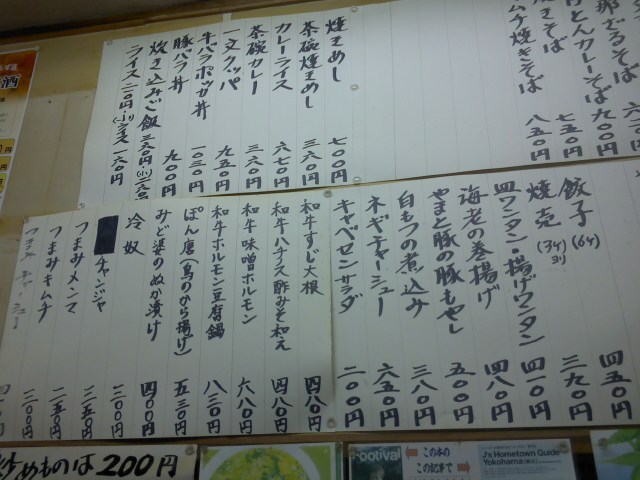 そば 六
カレーそば 九〇〇円
そば 七五〇円
ムチ焼きそば 八五〇円
焼きめし 七〇〇円
茶碗焼きめし 三六〇円
カレーライス 六七〇円
茶碗カレー 三六〇円
一文クッパ 九五〇円
牛バラポッカ丼 一〇三〇円
豚バラ丼 九〇〇円
炊き込みご飯 三六〇円
ライス 二一〇円 (小)ライス 一六〇円
餃子(6ケ) 四五〇円
焼売(3ケ)ヨリ 三九〇円
皿ワンタン・揚げワンタン 四一〇円
海老の巻揚げ 四八〇円
やまと豚の豚もやし 五〇〇円
白もつの煮込み 三八〇円
ネギチャーシュー 六五〇円
キャベゼンサラダ 二〇〇円
和牛すじ大根 四八〇円
和牛ハチノス酢みそ和え 四八〇円
和牛味噌ホルモン 六八〇円
和牛ホルモン豆腐鍋 八三〇円
ぽん唐(鳥のから揚げ) 五三〇円
みど婆のぬか漬け 四〇〇円
冷奴 二〇〇円
チャンジャ 二五〇円
つまみメンマ 二五〇円
つまみキムチ 二〇〇円
つまみチャーシュー
炒めものは200円
ootival
この本の
この記事で
J's Hometown Guide
Yokohama
酒